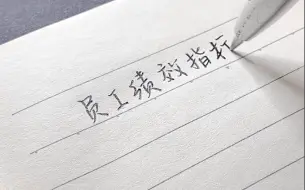 员工绩效指标